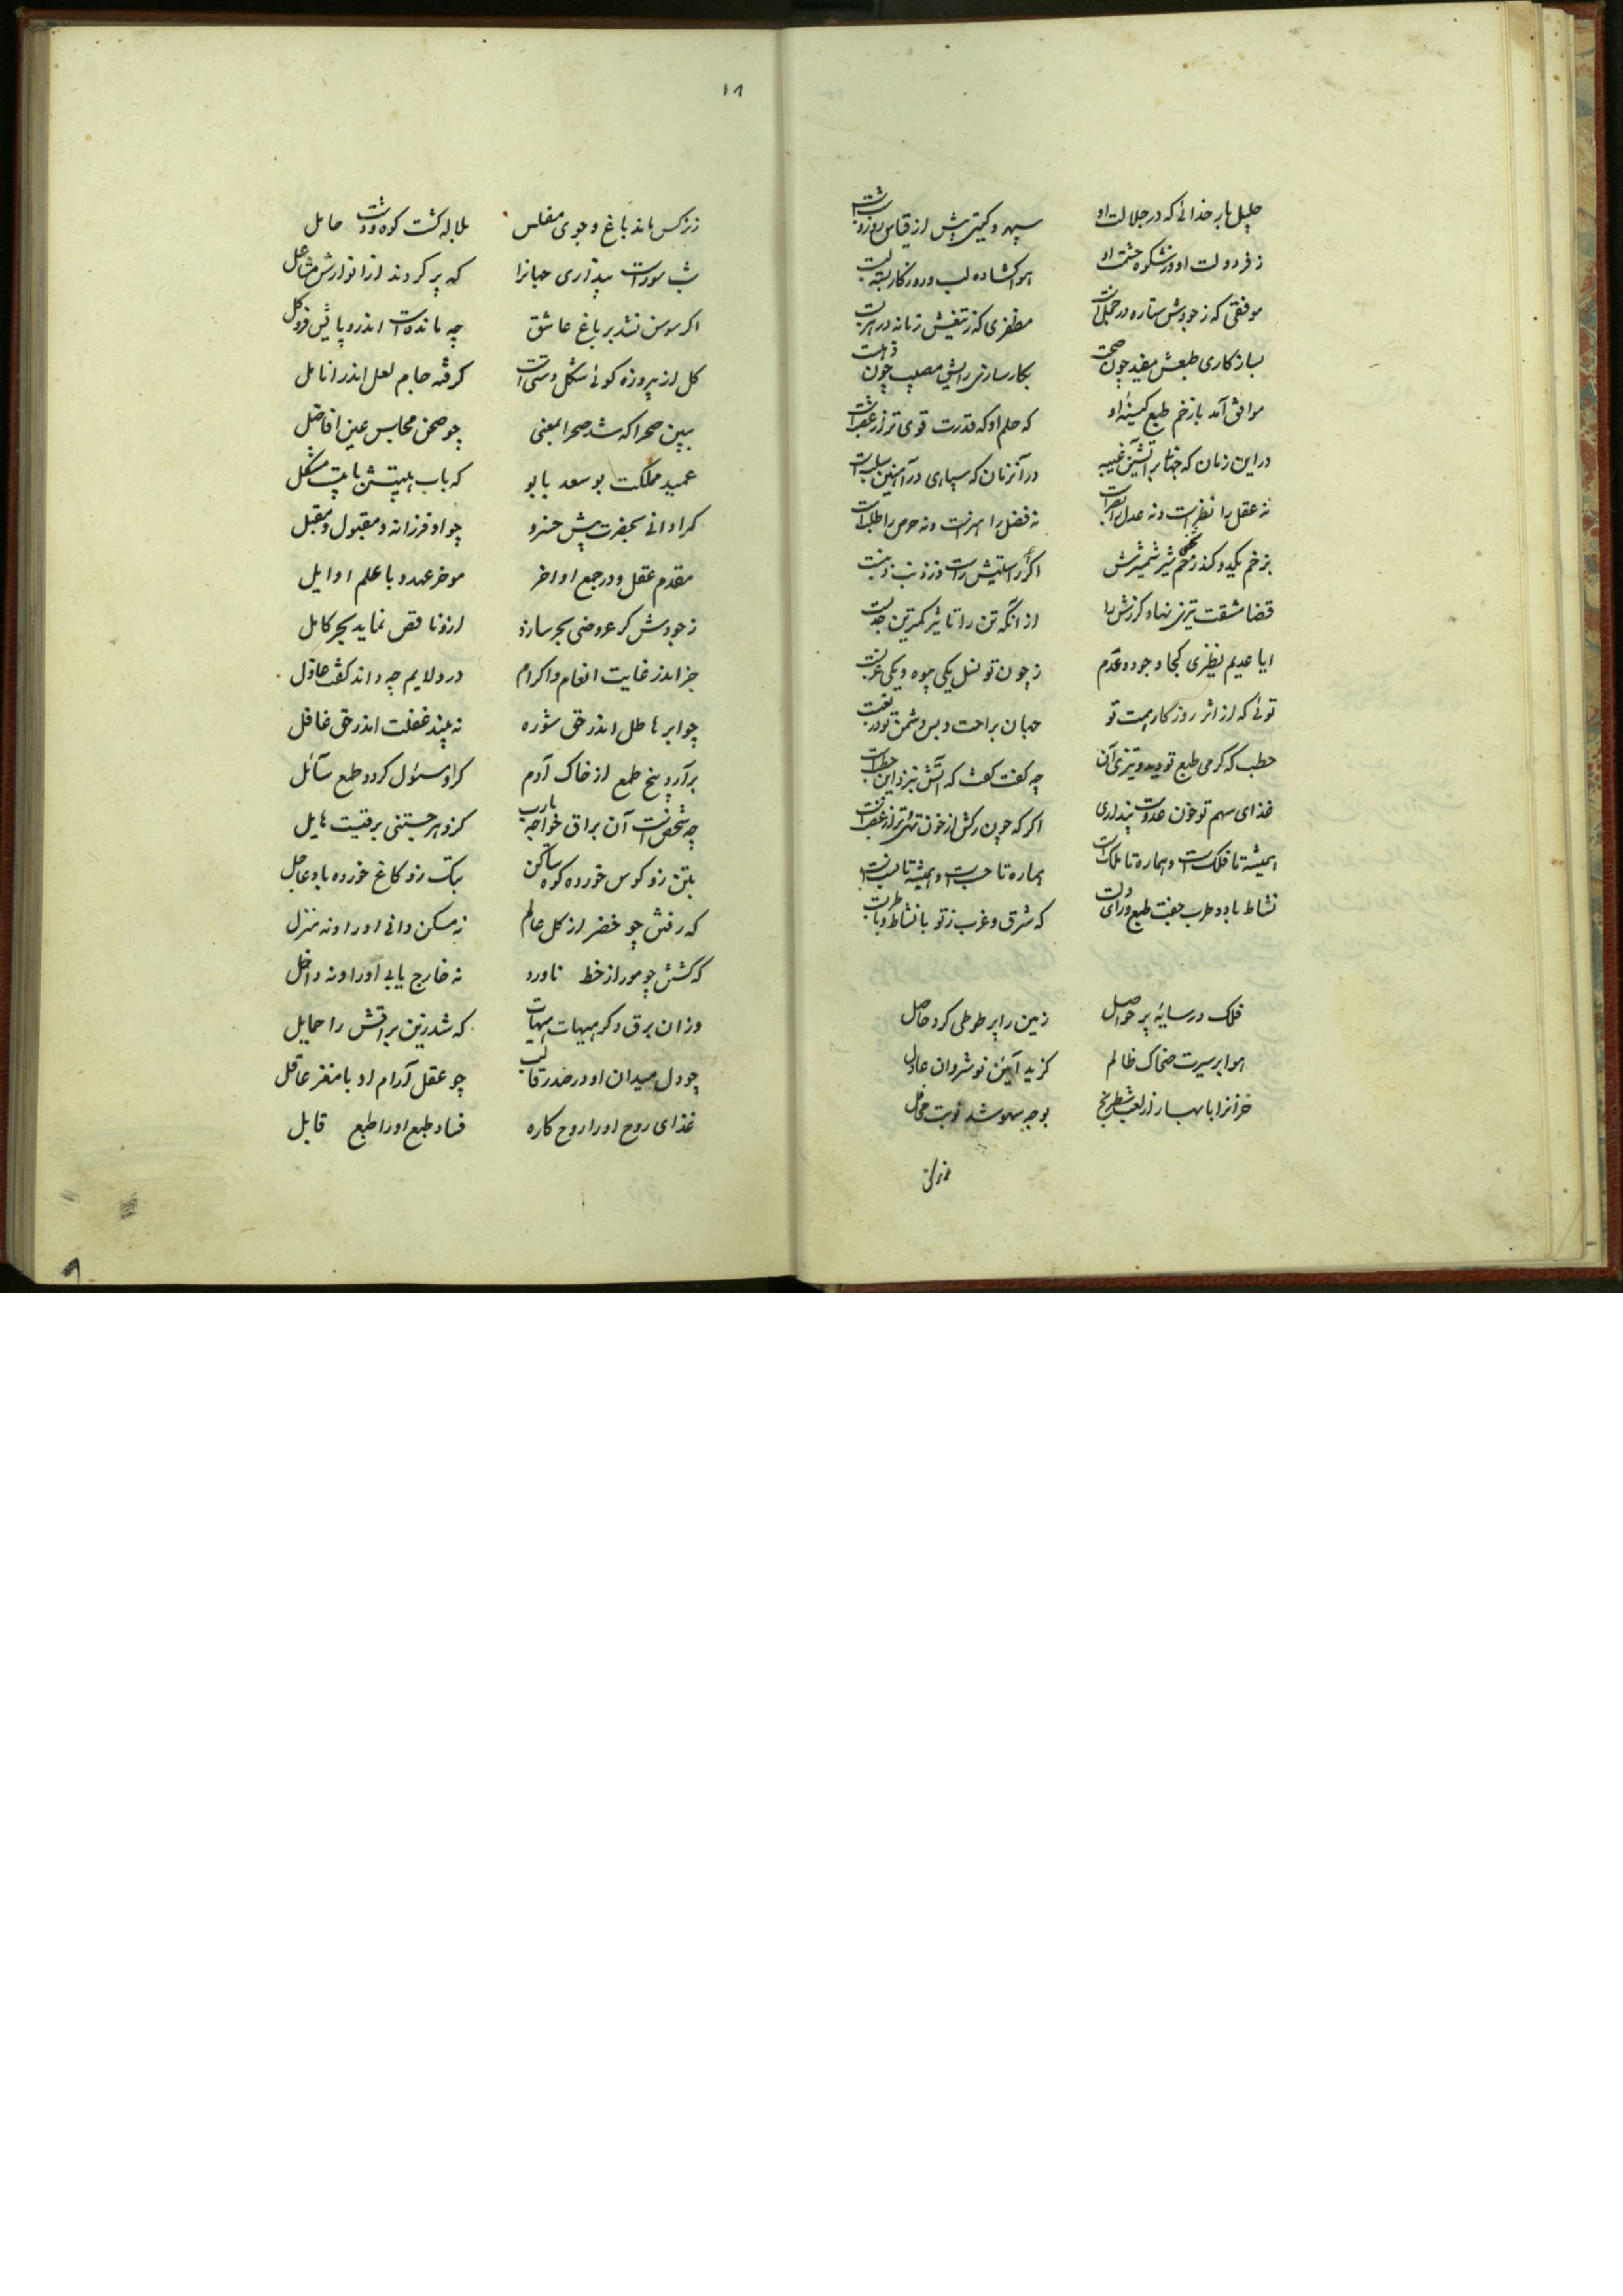 جلیل بار خدائی که در جلالت او سپهر و کیتی پیش از قیاس
ز فر دولت او وز شکوه حشمت او هوا کشاده لب و روزکار بسته لبست
موفقی که ز جودش ستاره در خجلست مظفری که ز تیغش زمانه در هربست
بسازکاری طبعش مفید چون صحت بکارسازی رایش مصیب چون ذهبست
موافق آمد با زخم طبع کینه او که حلم او که قدرت قوی تر از غضبست
در این زمان که جهانرا در آنزمان که سپاهی در آهنین سلبست
نه عقل را نظرست و نه عدل را نه فضل را هنرست و نه حرص را طلبست
بزخم یکید و کند زخم شیر شمشیرش اکر
قضا مشقت تیزی نهاد کرزش را از آنکه تن را تاثیر کمترین
ایا عدیم نظیری کجا وجود و عدم ز چون تو نسل یکی بیوه و یکی عزبست
توئی که از اثر روزکار همت تو جهان براحت و بس دشمن تو در تعبست
حطب که کرمی طبع تو دید و تیزی آن چه کفت کفت که آتش نیزد این حطبست
غذای سهم تو خون عدوست پنداری اکر که چون رکش از خون تهی تر از عصبست
همیشه تا فلکست و هماره تا ملکست هماره تا حسبست و همیشه تا نسبست
نشاط باد و طرب جفت طبع و رای که شرق و غرب ز تو با نشاط و با طربست
فلک در سایه پر حواصل زمین را پر طوطی کرد حاصل
هوا بر سیرت ضحاک ظالم کزید آیین نوشروان عادل
خزانرا با بهار از لعب شطرنج بوجه سهو شد نوبت
۱۸
ز نرکس ماند باغ و جوی مفلس بلاله کشت کوه و دشت حامل
شب سورست پنداری جهانرا که پر کردند از انوارش مشاعل
اکر سوسن نشد بر باغ عاشق چه ماندست اندرو پایش فرو کل
کل از پیروزه کوئی شکل دستی است کرفته جام لعل اندر انامل
ببین صحرا که شد صحرا بمعنی چو صحن مجلس عین افاضل
عمید مملکت بوسعد بابو که باب هیبتش بابیست مشکل
کرا دانی بحضرت پیش خسرو چو او فرزانه و مقبول و مقبل
مقدم عقل و در جمع اواخر موخر عهد و با علم اوایل
ز جودش کر عروضی بحر سازد ازو ناقص نماید بحر کامل
جز اندر غایت انعام و اکرام درو لایم چه داند کفت عاذل
چو ابر باطل اندر حق شوره نه بیند غفلت اندر حق غافل
برآرد بیخ طمع از خاک آدم کر او مسئول کردد طمع سائل
چه شخص است آن براق خواجه یارب کزو هر جستنی برقیست هایل
بتن زو کوس خورده کوه ساکن بتک زو کاغ خورده باد عاجل
که رفتن چو خضر از کل عالم نه مسکن دانی او را و نه منزل
که کشتن چو مور از خط ناورد نه خارج یابی او را و نه داخل
وزان برق دکر هیهات هیهات که شد زین براقش را حمایل
چو دل میدان او در صدر قالب چو عقل آرام او با مغز عاقل
غذای روح او را روح کاره فساد طبع او را طبع قابل